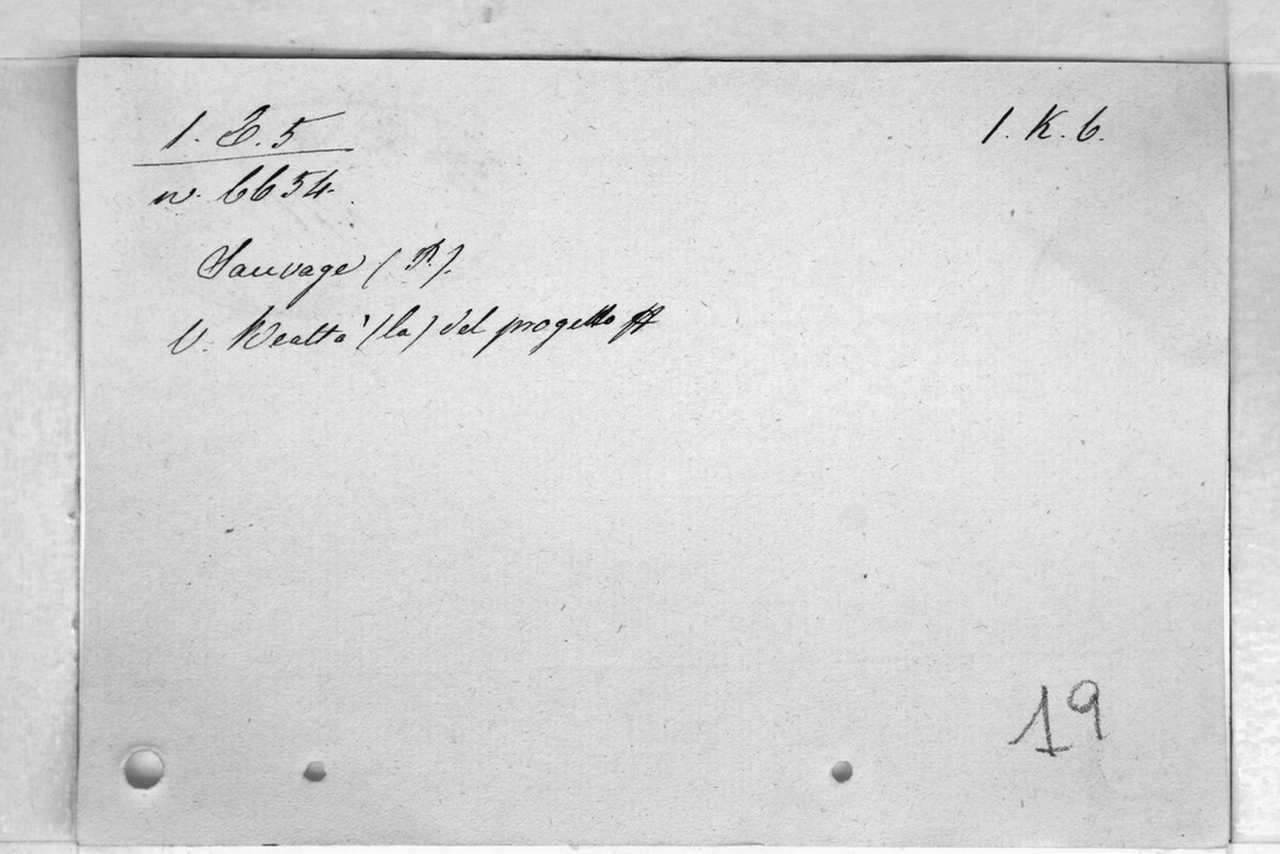 1. E. 5
1. K. 6.
n. 6654.
Sauvage (P.).
V. Realtà (la) del progetto
19